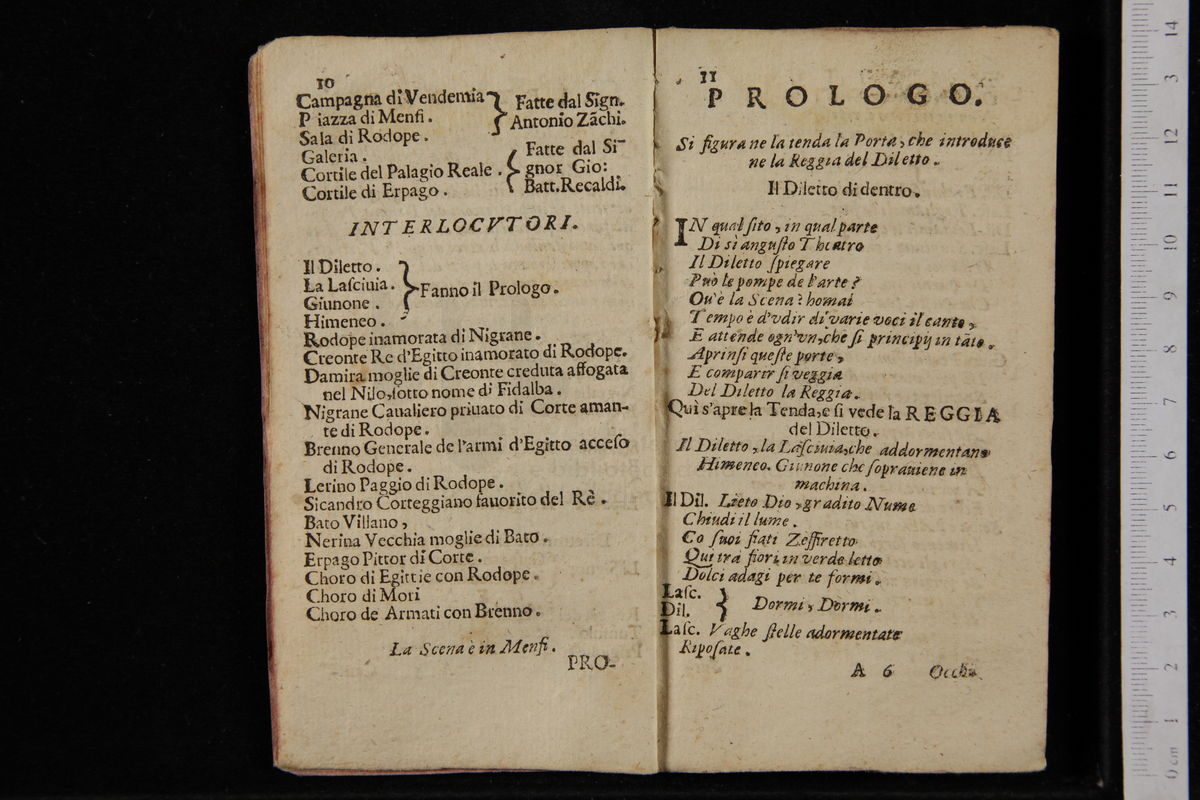 10
Campagna di Vendemia
P iazza di Menfi .
Sala di Rodope .
Fatte dal Sign.
Antonio Zãchi.
Galeria .
Cortile del Palagio Reale .
Cortile di Erpago .
Fatte dal Si-
gnor Gio:
Batt.Recaldi.
INTERLOCVTORI.
Il Diletto .
La Laſciuia .
Giunone .
Himeneo .
Fanno il Prologo.
Rodope inamorata di Nigrane .
Creonte Re d'Egitto inamorato di Rodope.
Damira moglie di Creonte creduta affogata
nel Nilo,ſotto nome di Fidalba .
Nigrane Caualiero priuato di Corte aman-
te di Rodope .
Brenno Generale de l'armi d'Egitto acceſo
di Rodope .
Lerino Paggio di Rodope .
Sicandro Corteggiano fauorito del Rè .
Bato Villano ,
Nerina Vecchia moglie di Bato .
Erpago Pittor di Corte .
Choro di Egittie con Rodope .
Choro di Mori
Choro de Armati con Brenno .
La Scena è in Menfi .
PRO-
11
PROLOGO.
Si figura ne la tenda la Porta , che introduce
ne la Reggia del Diletto .
Il Diletto di dentro .
IN qual ſito , in qual parte
Di sì anguſto Theatro
Il Diletto ſpiegare
Può le pompe de l'arte ?
Ou'è la Scena ? homai
Tempo è d'vdir di varie voci il canto ,
E attende ogn'vn,che ſi principij in tãto .
Aprinſi queſte porte ,
E comparir ſi veggia
Del Diletto la Reggia .
Qui s'apre la Tenda,e ſi vede la REGGIA
del Diletto .
Il Diletto , la Laſciuia,che addormentano
Himeneo. Giunone che ſoprauiene in
machina .
Il Dil. Lieto Dio , gradito Nume
Chiudi il lume .
Co ſuoi fiati Zeffiretto
Qui trà fiori in verde letto
Dolci adagi per te formi .
Laſc.
Dil.
Dormi , Dormi .
Laſc. Vaghe ſtelle adormentate
Ripoſate .
A 6
14
3
12
11
10
9
8
7
6
5
4
3
2
1
0 cm